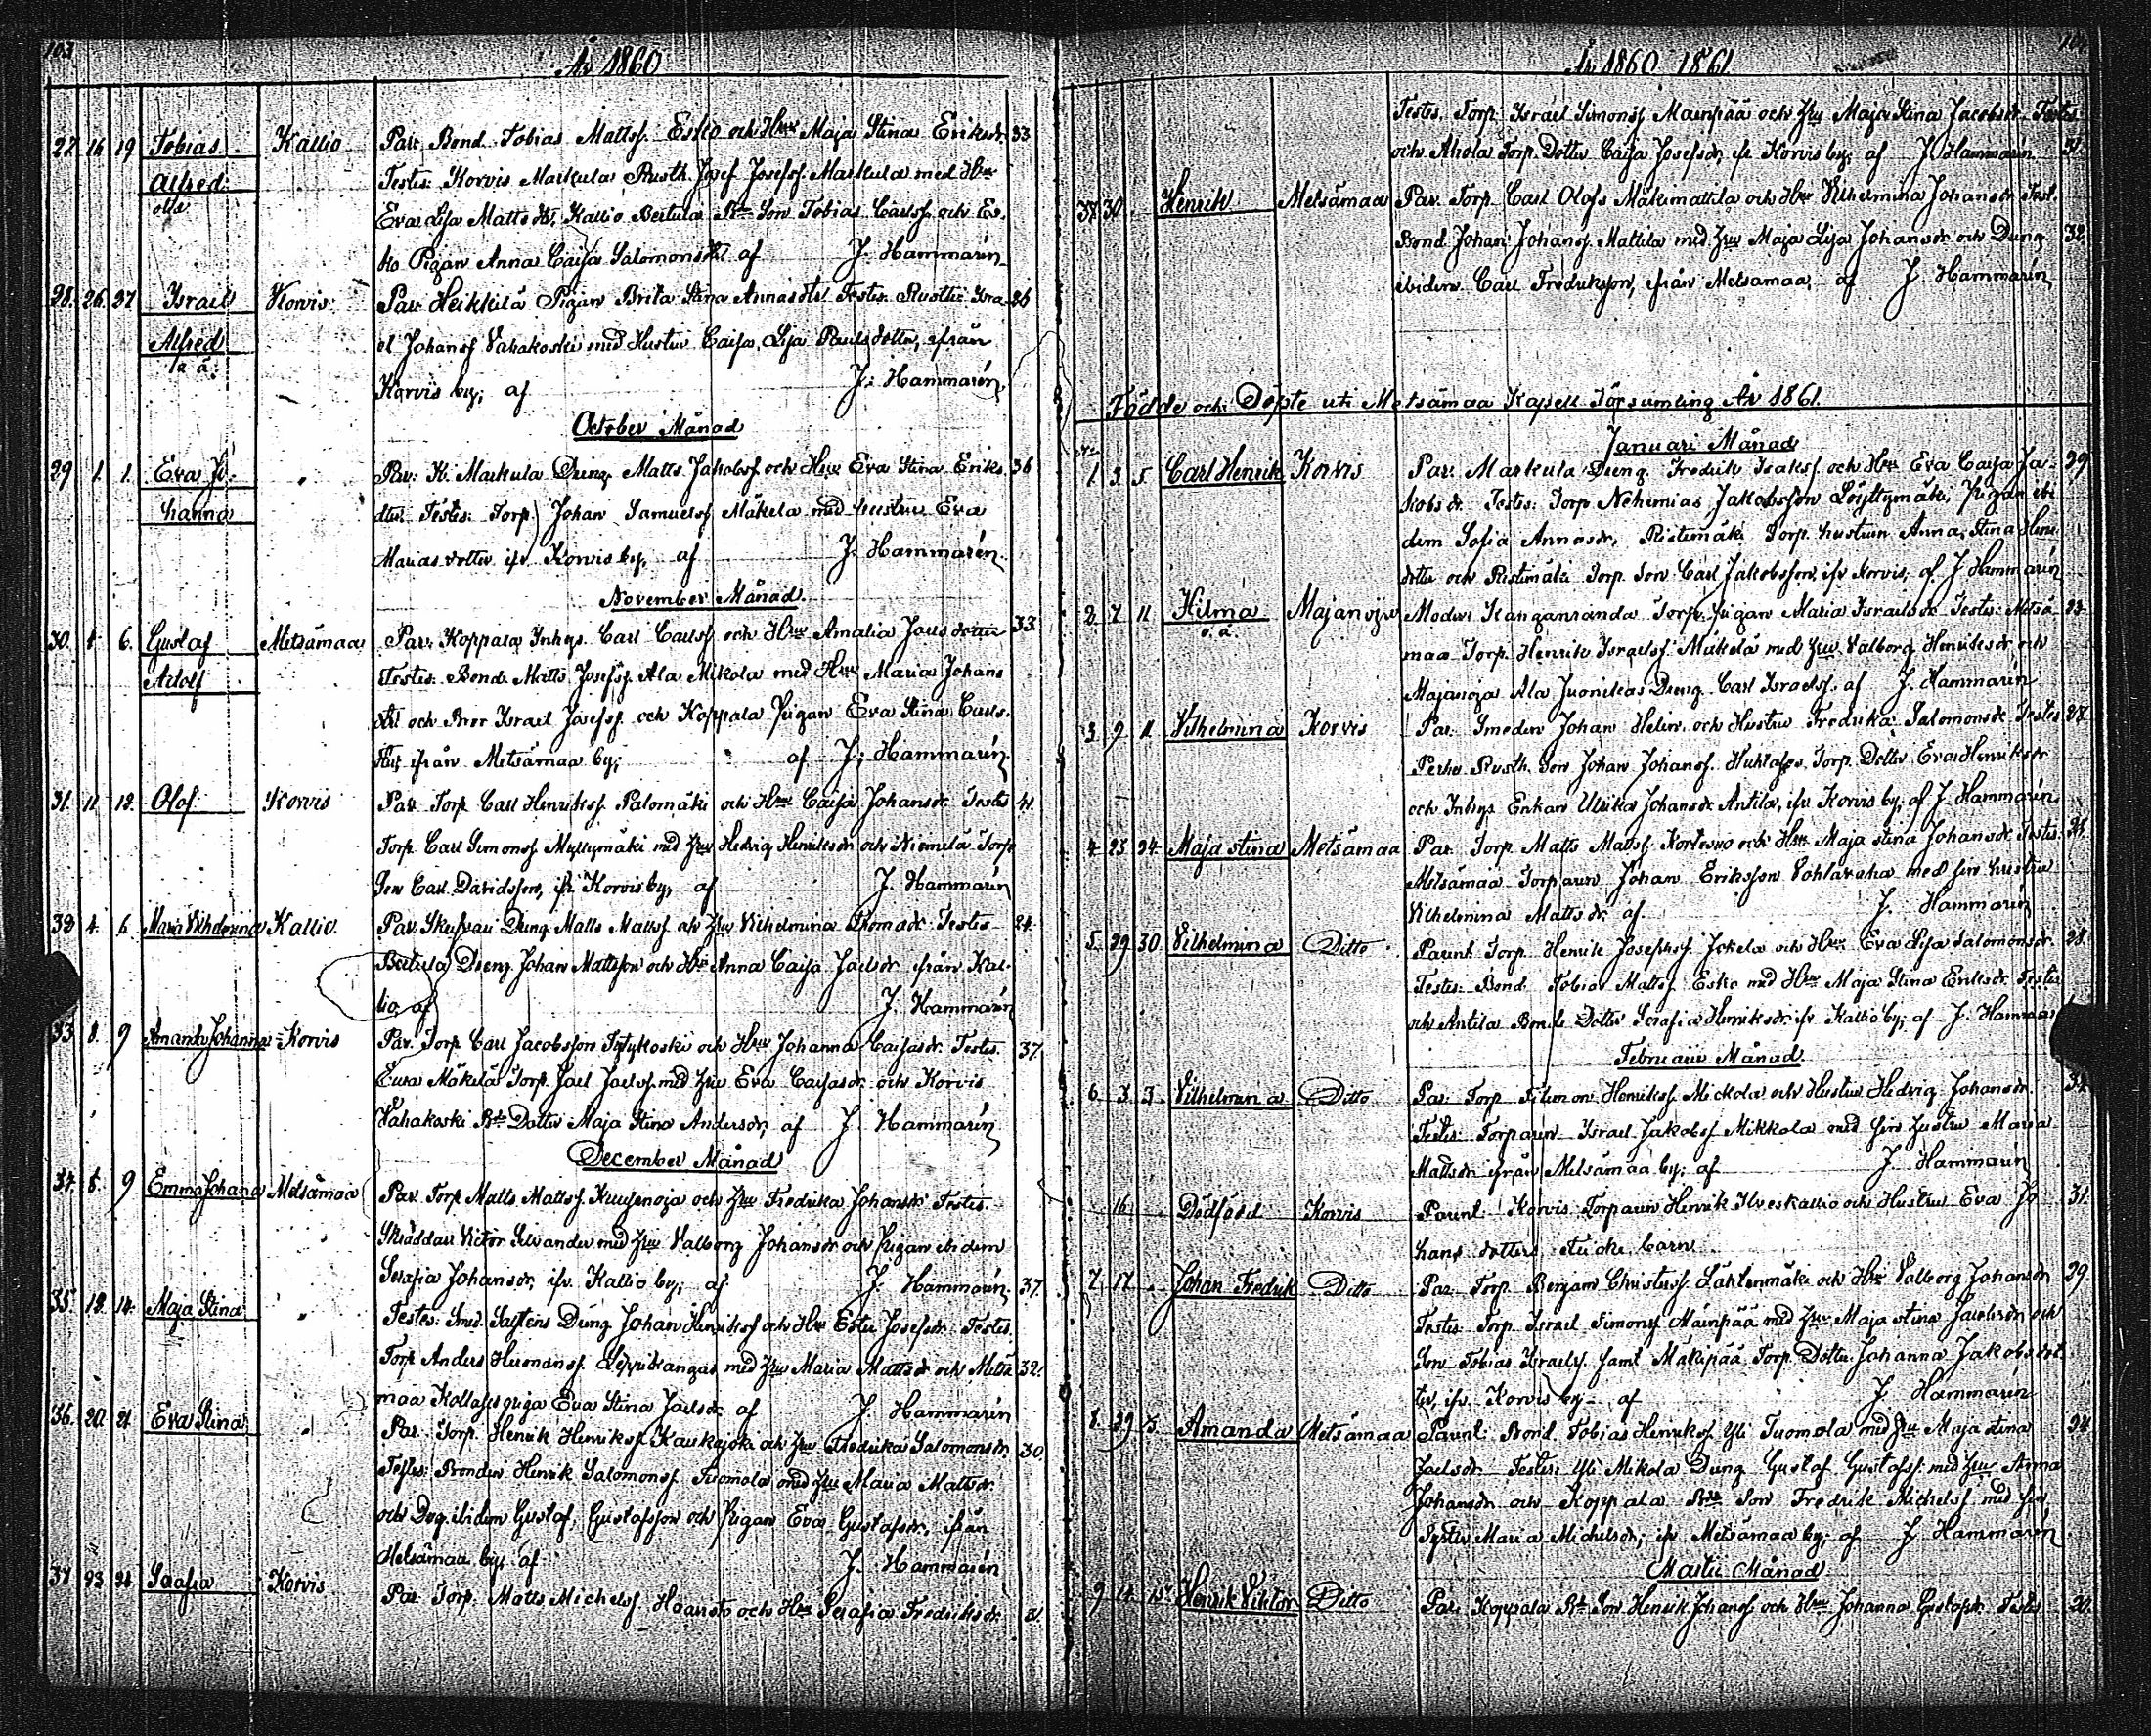 103
År 1860
27 16 19 Tobias Kallio Par. Bond. Tobias Mattsf. Esko och Hru Maja Stina Eriksdr. 33
Alfred Testes: Korvis Markula Rusth. Josef Josefsf. Markula med Hru
Eva Lisa Mattsdr, Kallio Bertula Son Tobias Carlsf. och Es-
ko Pigan Anna Caisa Salomonsdr af J. Hammarén
28. 26. 27 Israel Korvis Par. Heikkilä Pigan Brita Stina Annasdtr. Testes. Isra- 26
Alfred el Johansf Vahakoski med Hustru Caisa Lisa Paulsdotter, ifrån
o. ä. Korvis by; af J. Hammarén
October Månad
29 1. 1. Eva Jo- " Par. K. Markula Dreng Matts Jakobsf och Hru Eva Stina Eriks- 36
hanna dtr. Testes: Torp. Johan Samuelsf Mäkelä med hustru Eva
Mariasdotter ifr Korvis by, af J. Hammarén.
November Månad.
30. 6. Gustaf Metsämaa Par. Koppala Inhys. Carl Carlsf och Hru Amalia 33
Adolf Testes: Bond. Matts Josefsf. Ala Mikola med Hru Maria Johans
dtr och Bror Israel Josefsf. och Koppala Pigan Eva Stina Carls-
ifrån Metsämaa by; af J. Hammarén.
31. 11 12. Olof Korvis Par. Torp Carl Henriksf. Palomäki och Hru Caisa Johansdr. Testes 41.
Torp. Carl Simonsf Myllymäki med Hru Hedvig Henriksdr och Niemilä Torp
Son Carl Davidsson, ifr Korvis by, af J. Hammarén
32 4. 6 Maria Vilhelmina Kallio. Par. Dreng Matts Mattsf. och Hru Vilhelmina Thomadr. Testes 24.
Bertula Dreng Johan Mattsson och Hru Anna Caisa Joelsdr ifrån Kal-
lio, af J. Hammarén
33. 8. 9 Amanda Johanna Korvis Par. Torp. Carl Jacobsson och Hru Johanna Caisasdr. Testes. 37.
Mäkelä Torp. Joel Joelsf. med Hru Eva Caisasdr och Korvis
Vahakoski Dotter Maja Stina Andersdr, af J. Hammarén
December Månad
34. 8. 9 Emma Johana Metsämaa Par. Torp Matts Mattsf. och Hru Fredrika Johansdr Testes.
Skräddare Victor Silvander med Hru Valborg Johansdr och Pigan ibidem
Serafia Johansdr, ifr. Kallio by, af J. Hammarén. 37.
35. 12. 14. Maja Stina " Testes: Dreng Johan Henriksf och Hru Ester Josefsdr. Testes.
Torp Anders Hermansf. Lepp̈ikangas med Hru Maria Mattsdr och Metsä 32.
maa piga Eva Stina Joelsdr af J. Hammarén
36. 20. 21. Eva Stina " Par. Torp. Henrik Henriksf. och Hru Fredrika Salomonsdr. 30
Testes: Bonden Henrik Salomonsf. Tuomola med Hru Maria Mattsdr.
och Drg. ibidem Gustaf Gustafsson och Pigan Eva Gustafsdr, ifrån
Metsämaa by, af J. Hammarén
37 23 24 Serafia Korvis Par. Torp. Matts Michelsf. och Hru Serafia Fredriksdr. 21.
År 1860 1861
Testes. Torp. Israel Simonsf Mainpää och Hru Maja Stina Jacobsdr. Testes
och Ahola Torp. Dotter Caisa Josefsdr, ifr Korvis by; af J. Hammarén. 31.
30. Henrik Metsämaa Par. Torp. Carl Olofs Mäkimattila och Hru Vilhelmina Johansdr Test.
Bond. Johan Johansf. Mattila med Hru Maja Lisa Johansdr och Dreng 32.
ibidem Carl Fredriksson, ifrån Metsämaa, af J. Hammarén
Födde och Döpte uti Metsämaa Kapell Församling År 1861.
Januari Månad
1. 3. 5. Carl Henrik Korvis Par. Markula Dreng. Fredrik Isaksf. och Hru Eva Caisa Ja- 29
kobsdr. Testes: Torp Nehemias Jakobsson Löyttymäki, Pigan ibi
dem Sofia Annasdr, Ristimäki Torp. hustrun Anna Stina Henr.
dotter och Ristimäki Torp. Son Carl Jakobsson, ifr Korvis, af J. Hammarén
2. 7 11. Hilma Majanoja Modren Kanganranda Torp. Pigan Maria Israelsdr Testes: Metsä 23.
o. ä. maa Torp. Henrik Israelsf. Mäkelä med Hru Valborg Henriksdr och
Majanoja Ala Juonikas Dreng. Carl Israelsf. af J. Hammarén
3. 9 11 Vilhelmina Korvis Par. Smeden Johan Helin och Hustru Fredrika Salomonsdr Testes 27.
Rusth. Son Johan Johansf. Torp. Dotter Eva Henriksdr
och Inhys Enkan Ulrika Johansdr Antila, ifr Korvis by, af J. Hammarén.
4. 23 24. Maja Stina Metsämaa Par. Torp. Matts Mattsf. och Hru Maja Stina Johansdr Testes.
Metsämaa Torparen Johan Eriksson med sin hustru
Vilhelmina Mattsdr. af J. Hammarén
5. 29 30. Vilhelmina Ditto Parent. Torp. Henrik Josephsf. Jokela och Hru Eva Lisa Salomonsdr. 28.
Testes: Bond. Tobias Mattsf. Esko med Hru Maja Stina Eriksdr. Testes
och Antila Bonde Dotter Serafia Henriksdr ifr Kallio by; af J. Hammarén
Februarii Månad
6. 3. 3. Vilhelmina Ditto Par. Torp Filemon Henriksf. Mickola och Hustru Hedvig Johansdr.
Testes: Torparen Israel Jakobsf Mikkola med sin hustru Maria
Mattsdr ifrån Metsämaa by; af J. Hammarén
16 Dödfödd Korvis Parent: Korvis Torparen Henrik Ilveskallio och Hustru Eva Jo- 31.
hans dotters barn
7. 17 Johan Fredrik Ditto Par. Torp. Benjam. Christersf. Lähteenmäki och Hru Valborg Johansdr 29.
Testes Torp. Israel Simonsf Mäinpää med Hru Maja Stina Jacobsdr och
Son Tobias Israelsf. samt Mäkipää Torp. Dotter Johanna Jakobsdot-
ter, ifr. Korvis by af J. Hammarén
8. Amanda Metsämaa Parent: Bond. Tobias Henriksf. Yli Tuomola med Hru Maja Stina 24
Joelsdr. Testes: Yli Mikola Dreng Gustaf Gustafsf. med Hru Anna
Johansdr och Koppala Son Fredrik Michelsf med sin
Syster Maria Michelsdr; ifr Metsämaa by; af J. Hammarén
Martii Månad
9 14. 15. Henrik Viktor Ditto Par. Koppala Son Henrik Johansf och Hru Johanna Gustafsdr. Testes 20.